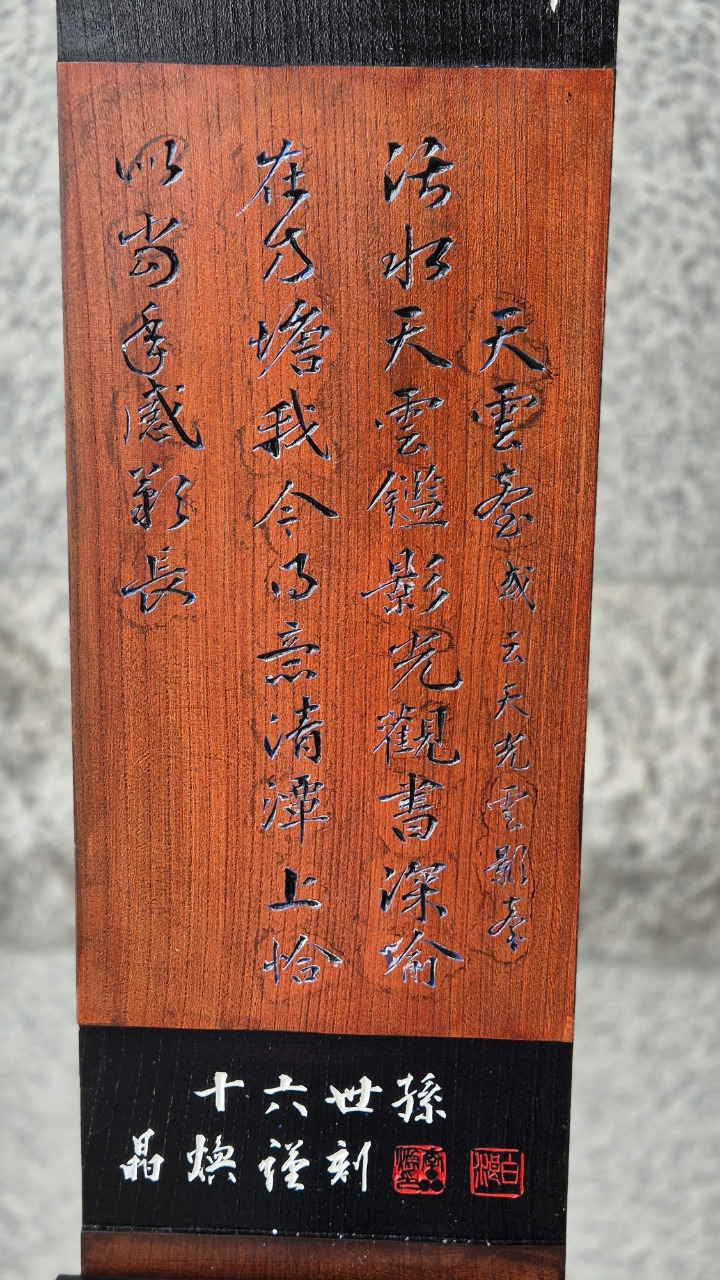 天雲臺 或云天光雲影臺
活水天雲鑑影光觀書深喻
在方塘我今得意清潭上恰
似當年感歎長
十六世孫
晶煥謹刻